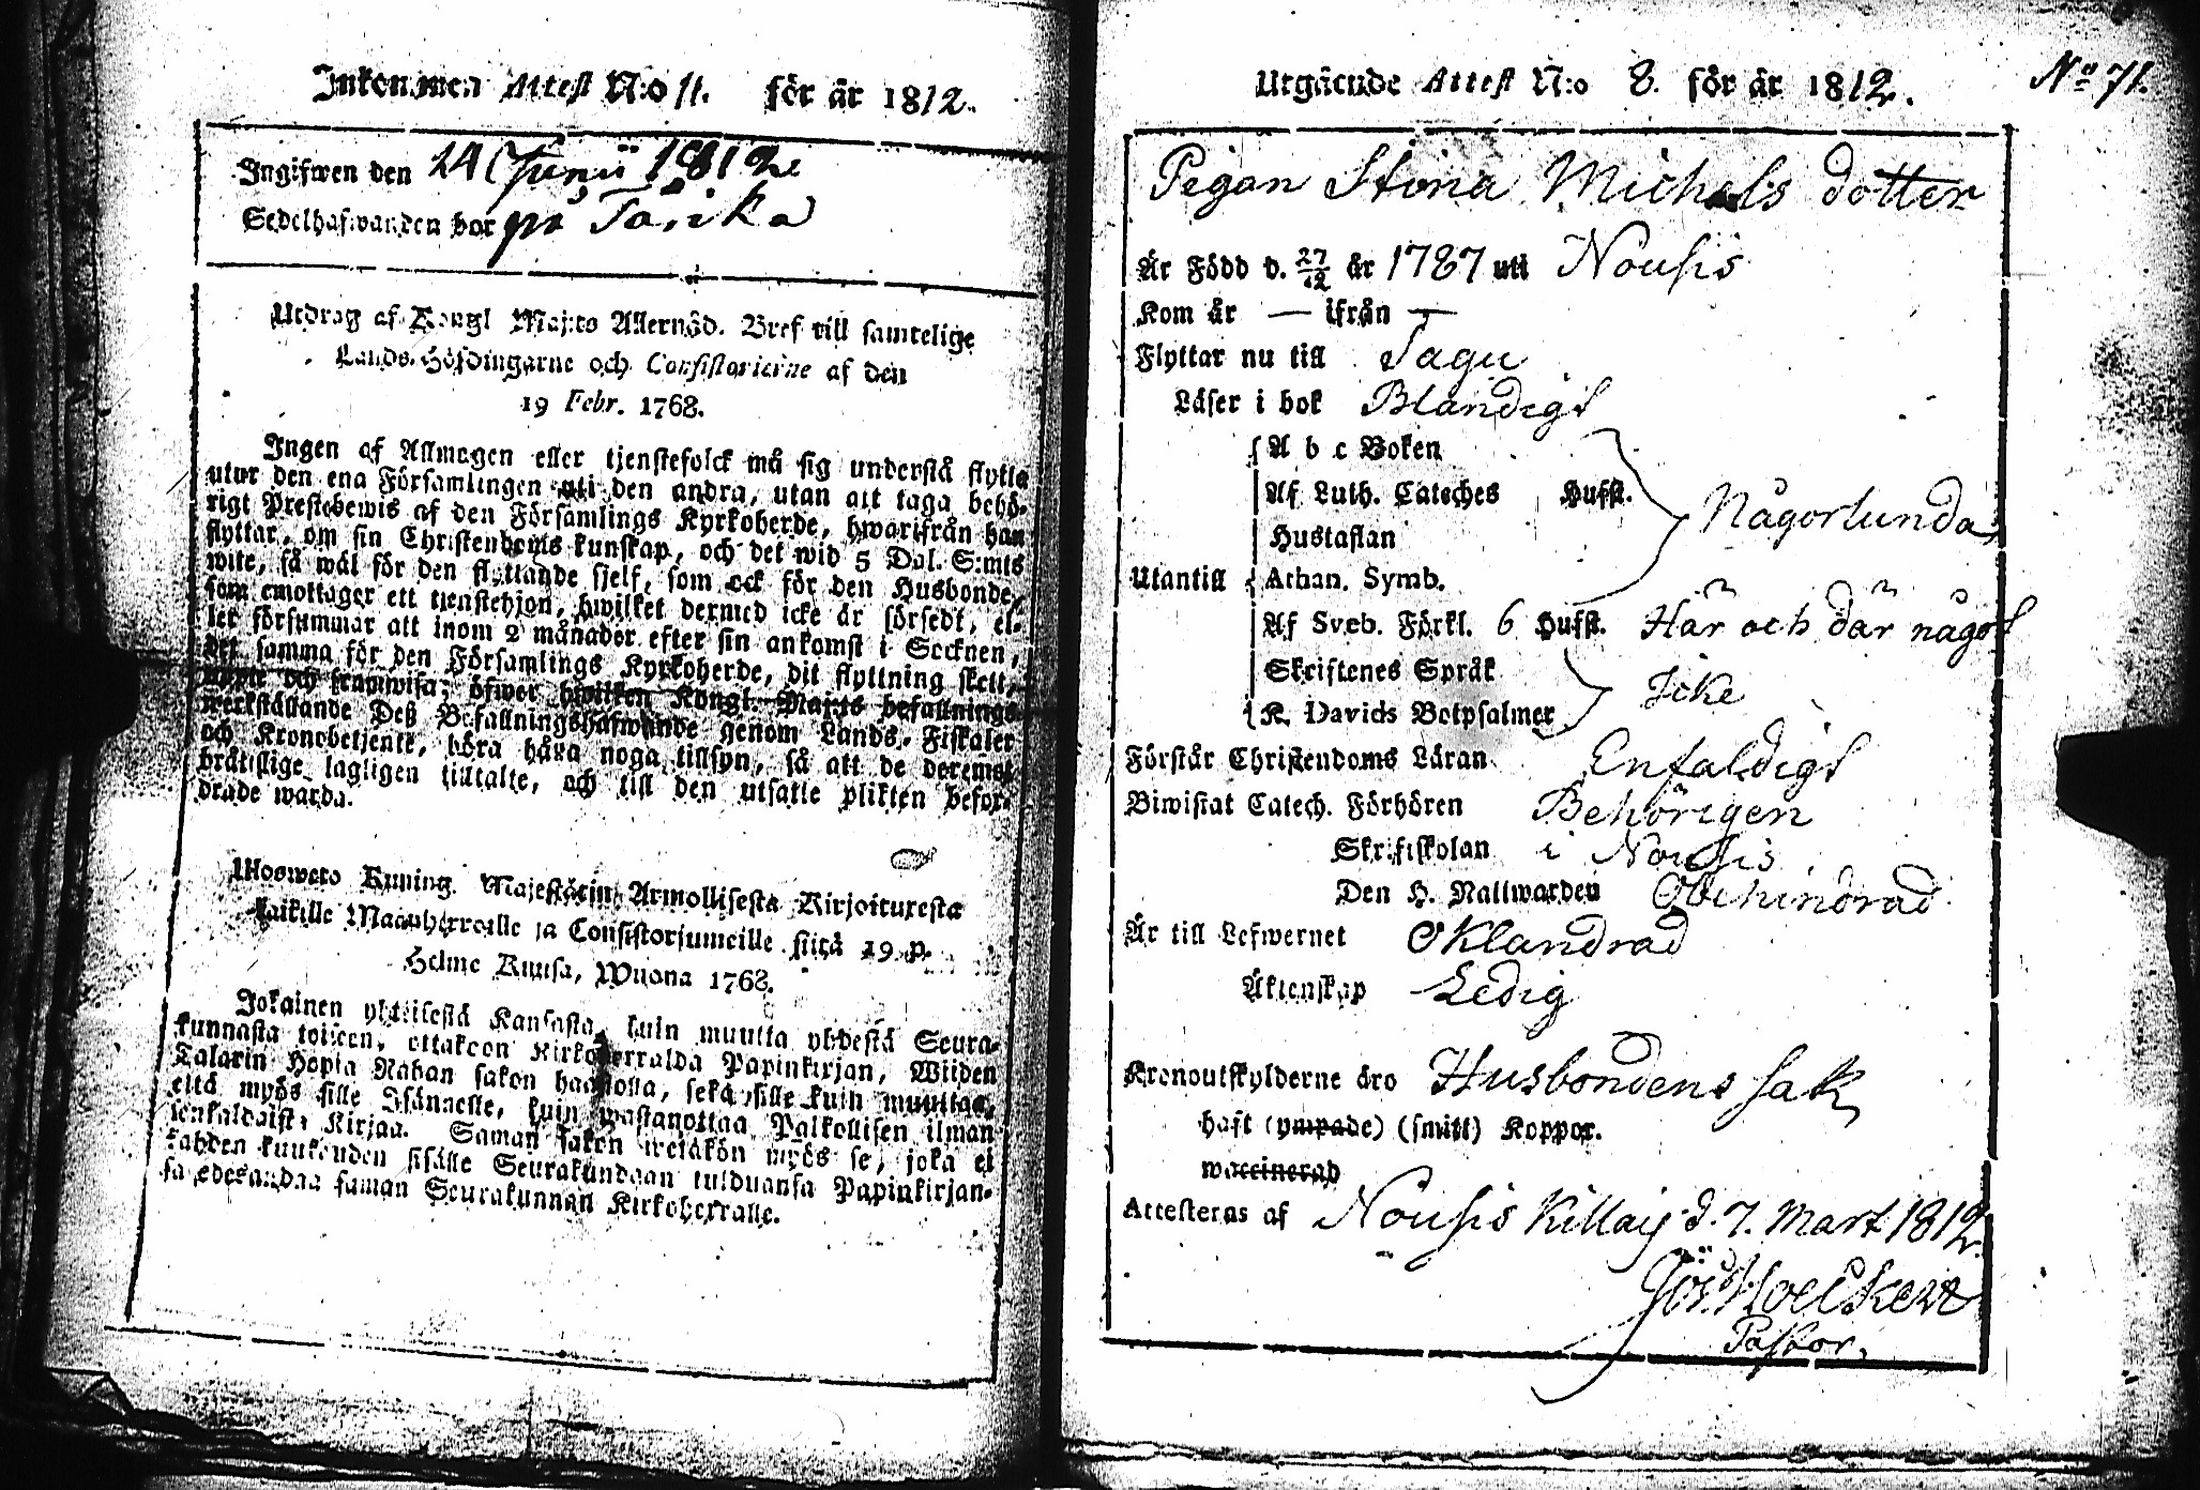 Inkommen Attest N:o 11. för år 1812.
Ingifwen den 14 Junii 1812
Sedelhafwanden bor på
Utdrag af Kongl Maj:ts Allernåd. Bref till samtelige
Lands-Höfdingarne och Consistorierne af den
19 Febr. 1768.
Ingen af Allmogen eller tjenstefolck må sig understå flytta
utur den ena Församlingen uti den andra, utan att taga behö-
rigt Prestebewis af den Församlings Kyrkoherde, hwarifrån han
flyttar, om sin Christendoms kunskap, och det wid 5 Dal. S:mts
wite, så wäl för den flyttande sjelf, som ock för den Husbonde,
som emottager ett tjenstehjon, hwilket dermed icke är försedt, el-
ler försummar att inom 2 månader efter sin ankomst i Socknen,
det samma för den Församlings Kyrkoherde, dit flyttning skett,
uppte och framwisa; öfwer hwilken Kongl. Maj:ts befallnings
werkställande Deß Befallningshafwande genom Lands-Fiskaler
och Kronobetjente, böra hafwa noga tillsyn, så att de deremot
brättslige lagligen tilltalte, och till den utsatte plikten befor-
drade warda.
Ulosweto Kuning. Majestätin Armollisesta Kirjoituxesta
kaikille Maanherroille ja Consistoriumeille siitä 19 p.
Helme Kuusa, Wuona 1768.
Jokainen yhteisestä Kansasta, kuin muutta yhdestä Seura-
kunnasta toiseen, ottakoon Kirkoherralda Papinkirjan, Wiiden
Talarin Hopia Rahan sakon haastolla, sekä sille kuin muuttaa,
että myös sille Isännelle, kuin wastanottaa Palkollisen ilman
senkaldaista Kirjaa. Saman sakon wetäkön myös se, joka ei
kahden kuukauden sisälle Seurakundaan tulduansa Papinkirjan-
sa edesandaa saman Seurakunnan Kirkoherralle.
Utgäende Attest N:o 8. för år 1812.
No 71.
Pigan Stina Michels dotter
Är Född d. 27/12 år 1787 uti Nousis
Kom år — ifrån —
Flyttar nu till Sagu
Läser i bok Blandigt
A b c Boken
Af Luth. Cateches Hufst.
Någorlunda
Hustaflan
Utantill Athan. Symb.
Af Sveb. Förkl. 6 Hufst. Här och där något
Skriftenes Språk
Icke
K. Davids Botpsalmer
Förstår Christendoms Läran Enfaldigt
Biwistat Catech. Förhören Behörigen
Skriftskolan i Nousis
Den H. Nattwarden Obehindrad
Är till Lefwernet Oklandrad
Äktenskap Ledig
Kronoutskylderne äro Husbondens sak
haft (ympade) (smitt) Koppor.
waccinerad
Attesteras af Nousis Killais d. 7. Mart 1812.
Pastor.